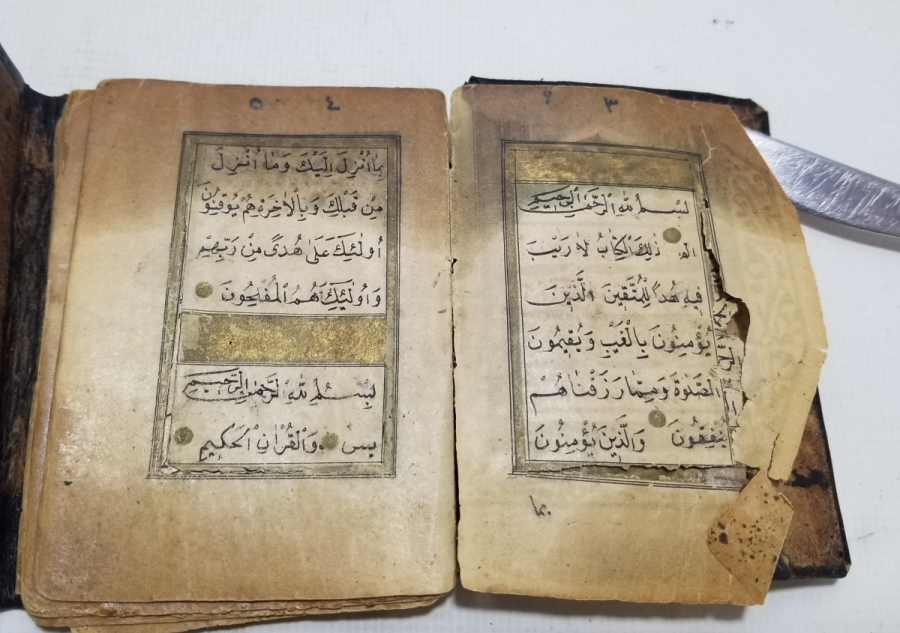 ٣
بسم الله الرحمن الرحيم
الم ذٰلِكَ الْكِتَابُ لَا رَيْبَ
فِيهِ هُدًى لِلْمُتَّقِينَ الَّذِينَ
يُؤْمِنُونَ بِالْغَيْبِ وَيُقِيمُونَ
الصَّلٰوةَ وَمِمَّا رَزَقْنَاهُمْ
يُنْفِقُونَ وَالَّذِينَ يُؤْمِنُونَ
٤ ٥
بِمَا أُنْزِلَ إِلَيْكَ وَمَا أُنْزِلَ
مِنْ قَبْلِكَ وَبِالْاٰخِرَةِ هُمْ يُوقِنُونَ
أُولٰئِكَ عَلٰى هُدًى مِنْ رَبِّهِمْ
وَأُولٰئِكَ هُمُ الْمُفْلِحُونَ
بِسْمِ اللّٰهِ الرَّحْمٰنِ الرَّحِيمِ
يس وَالْقُرْاٰنِ الْحَكِيمِ